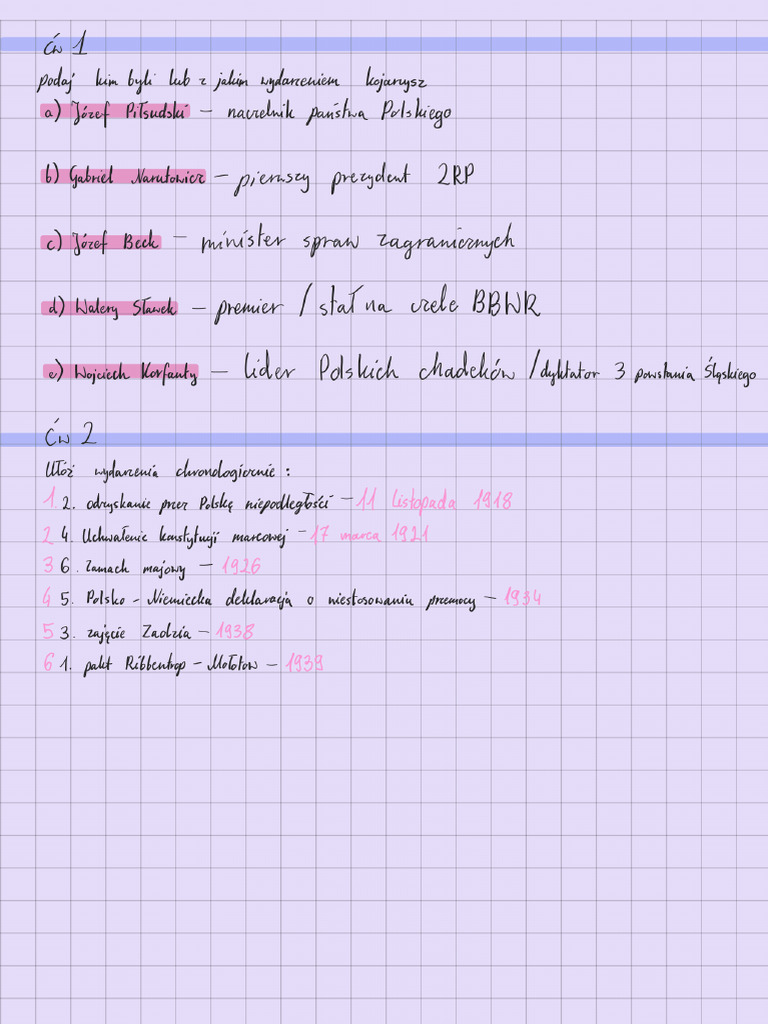 Ćw 1
podaj kim byli lub z jakim wydarzeniem kojarzysz
a) Józef Piłsudski – naczelnik państwa Polskiego
b) Gabriel Narutowicz – pierwszy prezydent 2RP
c) Józef Beck – minister spraw zagranicznych
d) Walery Sławek – premier / stał na czele BBWR
e) Wojciech Korfanty – lider Polskich chadeków / dyktator 3 powstania Śląskiego
Ćw 2
Ułóż wydarzenia chronologicznie :
1. 2. odzyskanie przez Polskę niepodległości – 11 listopada 1918
2 4. Uchwalenie konstytucji marcowej – 17 marca 1921
3 6. Zamach majowy – 1926
4 5. Polsko - Niemiecka deklaracja o niestosowaniu przemocy – 1934
5 3. zajęcie Zaolzia – 1938
6 1. pakt Ribbentrop – Mołotow – 1939